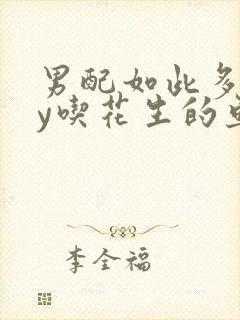 男配如此多
y喫花生的
李全福